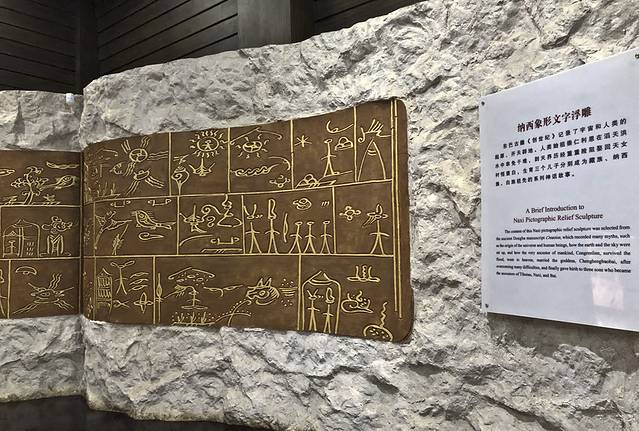 纳西象形文字浮雕
东巴古籍《创世纪》记录了宇宙和人类的
起源、开天辟地、人类始祖崇仁利恩在滔天洪
水中幸免于难，到天界历经磨难娶回天女
衬恒褒白，生育三个儿子分别成为藏族、纳西
族、白族祖先的系列神话故事。
A Brief Introduction to
Naxi Pictographic Relief Sculpture
The content of this Naxi pictographic relief sculpture was selected from
the ancient Dongba manuscript Creation, which recorded many myths, such
as the origin of the universe and human beings, how the earth and the sky were
set up, and how the very ancestor of mankind, survived the
flood, went to heaven, married the goddess, after
overcoming many difficulties, and finally gave birth to three sons who became
the ancestors of Tibetan, Naxi, and Bai.